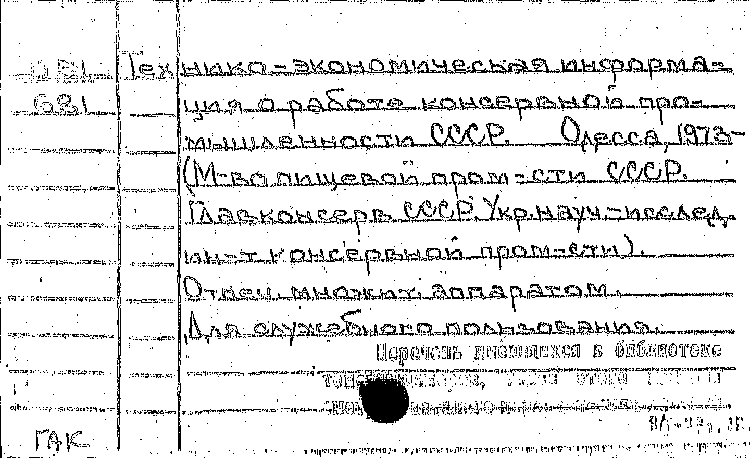 681 Технико-экономическая информа-
681 ция о работе консервной про-
мышленности СССР. Одесса, 1973-
(М-во пищевой пром-сти СССР.
Главконсерв СССР. Укр. науч.-исслед.
ин-т консервной пром-сти).
Отпеч. множит. аппаратом.
Для служебного пользования.
Перечень имеющихся в библиотеке
этого
ГАК